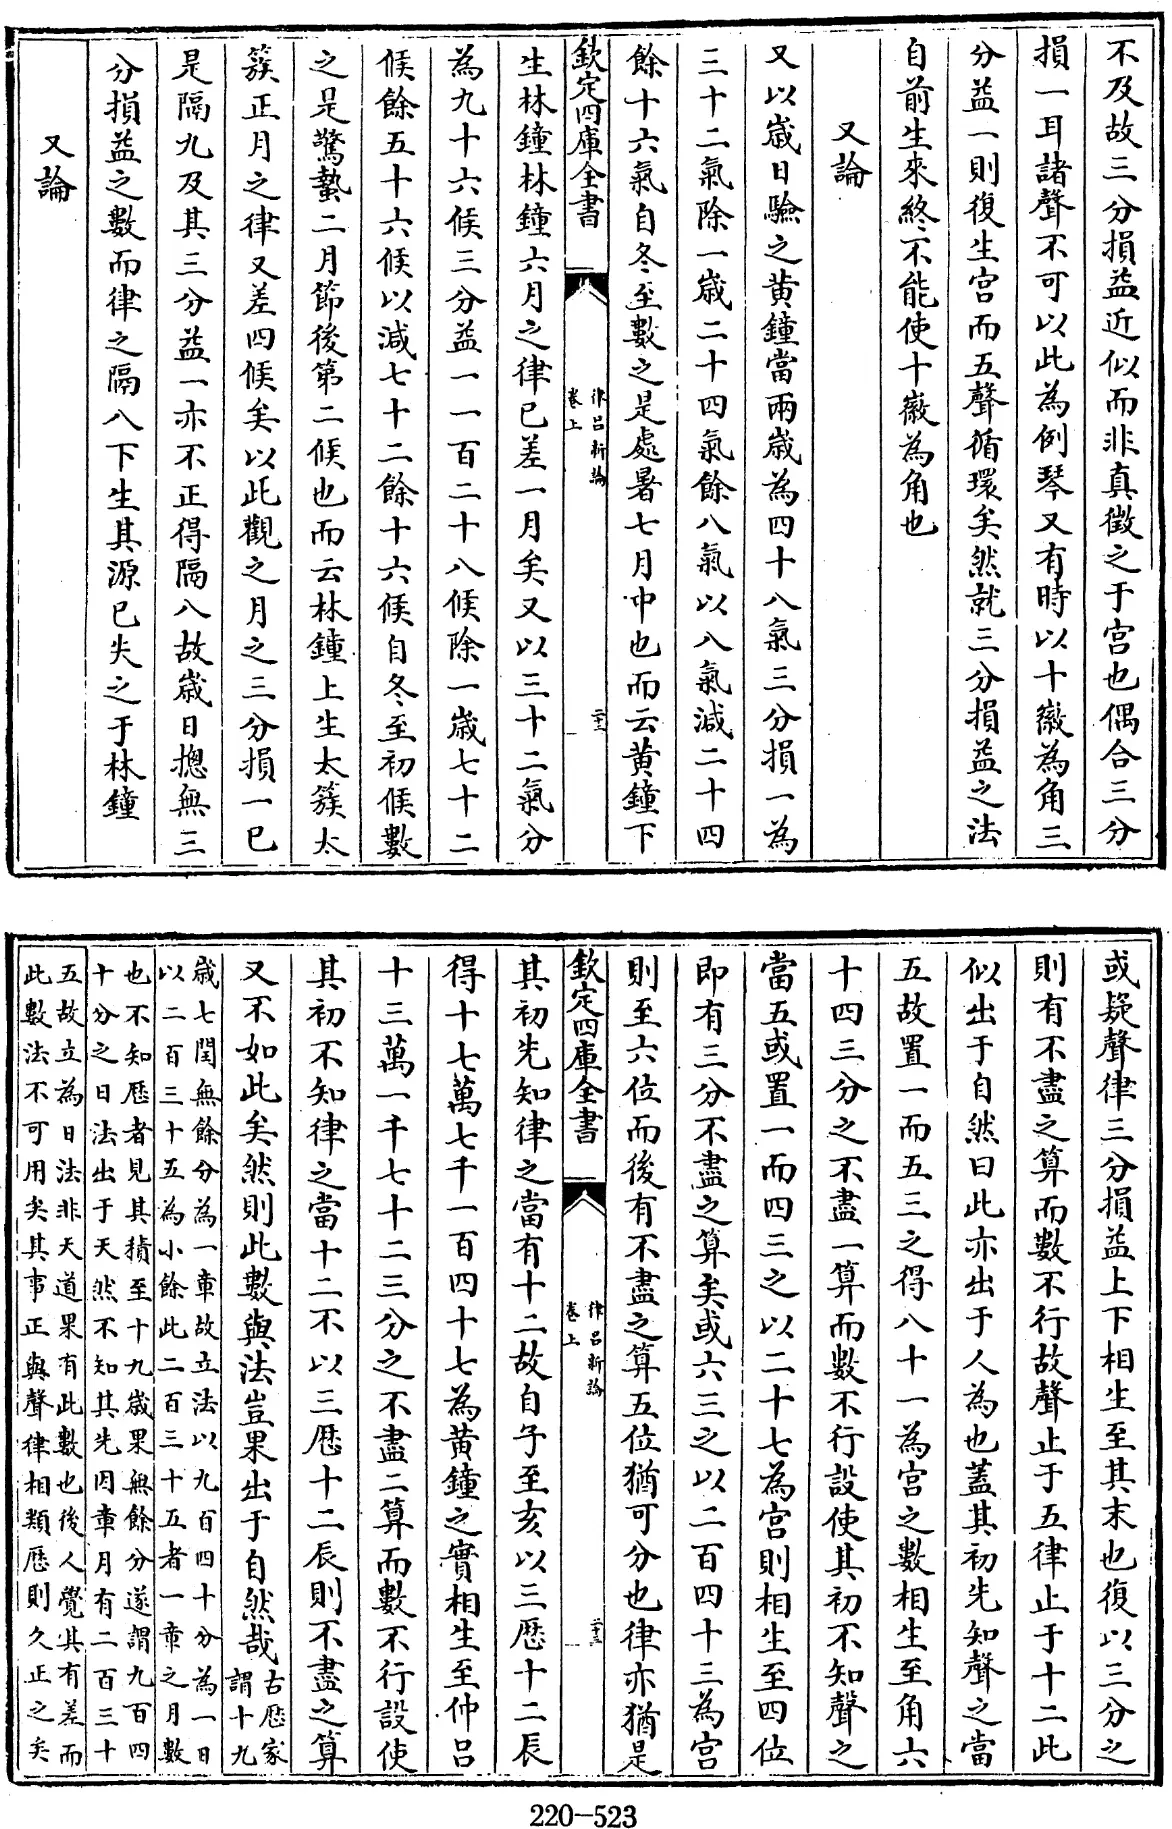 不及故三分損益近似而非真徵之于宫也偶合三分
損一耳諸聲不可以此為例琴又有時以十徽為角三
分益一則復生宫而五聲循環矣然就三分損益之法
自前生來終不能使十徽為角也
又論
又以歲日驗之黄鐘當兩歲為四十八氣三分損一為
三十二氣除一歲二十四氣餘八氣以八氣減二十四
餘十六氣自冬至數之是處暑七月中也而云黄鐘下
欽定四庫全書
律吕新論
卷上
二十三
生林鐘林鐘六月之律已差一月矣又以三十二氣分
為九十六候三分益一一百二十八候除一歲七十二
候餘五十六候以減七十二餘十六候自冬至初候數
之是驚蟄二月節後第二候也而云林鐘上生太簇太
簇正月之律又差四候矣以此觀之月之三分損一已
是隔九及其三分益一亦不正得隔八故歲日揔無三
分損益之數而律之隔八下生其源已失之于林鐘
又論
或疑聲律三分損益上下相生至其末也復以三分之
則有不盡之算而數不行故聲止于五律止于十二此
似出于自然曰此亦出于人為也蓋其初先知聲之當
五故置一而五三之得八十一為宫之數相生至角六
十四三分之不盡一算而數不行設使其初不知聲之
當五或置一而四三之以二十七為宫則相生至四位
即有三分不盡之算矣或六三之以二百四十三為宫
則至六位而後有不盡之算五位猶可分也律亦猶是
欽定四庫全書
律吕新論
卷上
二十三
其初先知律之當有十二故自子至亥以三歷十二辰
得十七萬七千一百四十七為黄鐘之實相生至仲吕
十三萬一千七十二三分之不盡二算而數不行設使
其初不知律之當十二不以三歷十二辰則不盡之算
又不如此矣然則此數與法豈果出于自然哉古歷家
謂十九
歲七閏無餘分為一章故立法以九百四十分為一日
以二百三十五為小餘此二百三十五者一章之月數
也不知歷者見其積至十九歲果無餘分遂謂九百四
十分之日法出于天然不知其先因章月有二百三十
五故立為日法非天道果有此數也後人覺其有差而
此數法不可用矣其事正與聲律相類歷則久正之矣
220-523